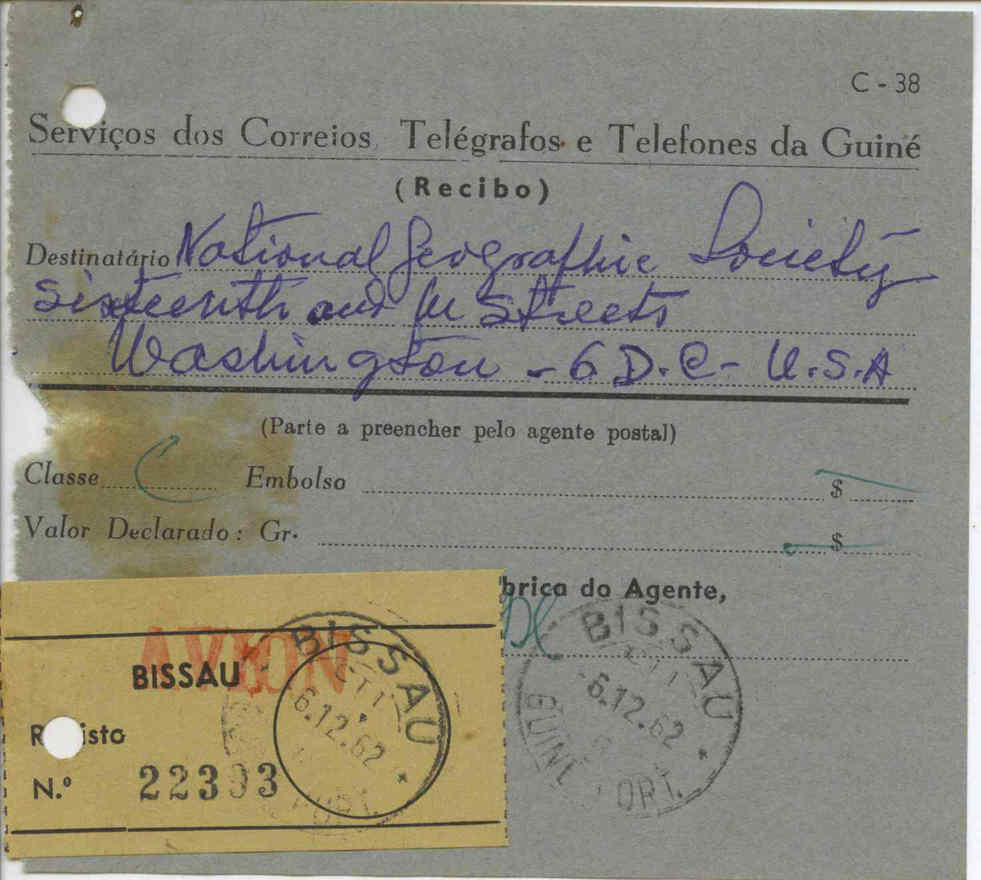 C - 38
Serviços dos Correios, Telégrafos e Telefones da Guiné
(Recibo)
Destinatário National Geographic Society
Sixteenth and M Streets
Washington - 6 D.C - U.S.A
(Parte a preencher pelo agente postal)
Classe C Embolso $
Valor Declarado: Gr. $
brica do Agente,
AVION
BISSAU
R isto
N.º 22393
BISSAU
6.12.62
BISSAU
6.12.62
GUINE PORT.